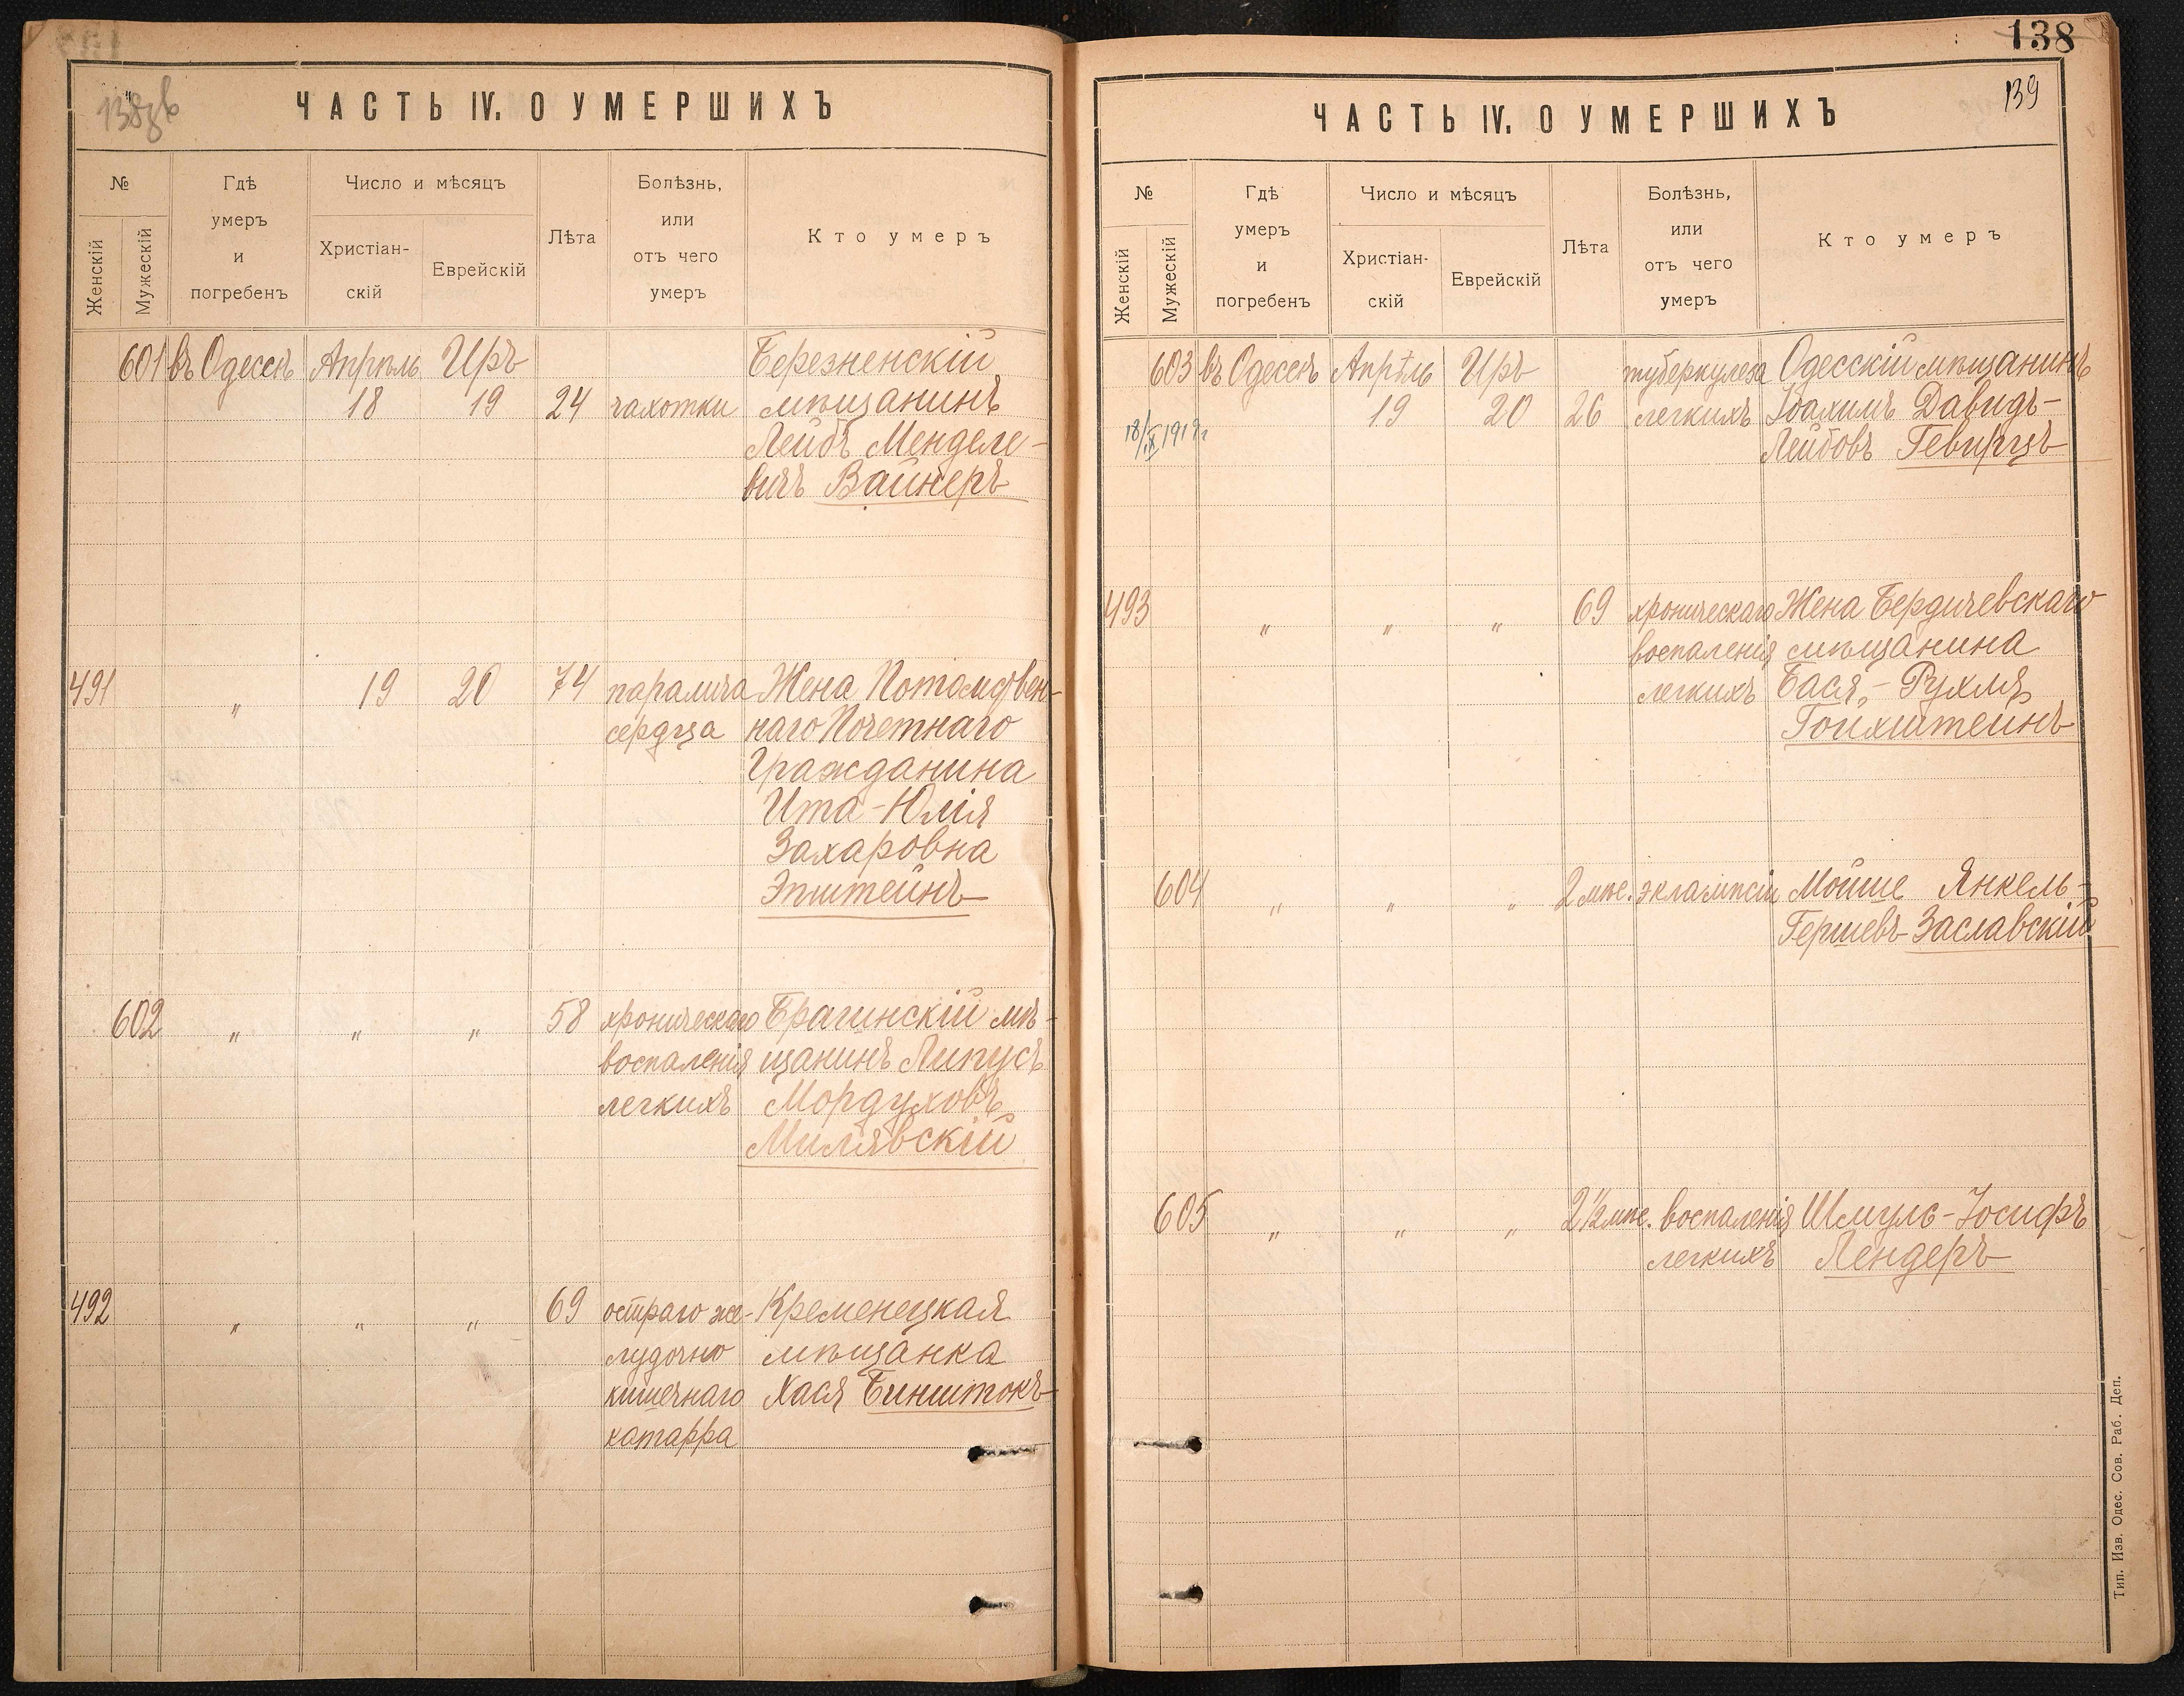 138
139
ЧАСТЬ IV. О УМЕРШИХЪ
№
Женскій
Мужескій
Гдѣ
умеръ
и
погребенъ
Число и мѣсяцъ
Христіан-
скій
Еврейскій
Лѣта
Болѣзнь,
или
отъ чего
умеръ
Кто умеръ
601 въ Одессѣ Апрѣль Иръ Березненскій
18 19 24 чахотки мѣщанинъ
Лейбъ Менделе-
вичъ Вайнеръ
491 " 19 20 74 паралича Жена Потомствен-
сердца наго Почетнаго
Гражданина
Ита-Юлія
Захаровна
Эпштейнъ
602 " " " 58 хроническаго Брагинскій мѣ-
воспаленія щанинъ Липусъ
легкихъ Мордуховъ
Милявскій
492 " " " 69 остраго же- Кременецкая
лудочно мѣщанка
кишечнаго Хася Бинштокъ
катарра
ЧАСТЬ IV. О УМЕРШИХЪ
№
Женскій
Мужескій
Гдѣ
умеръ
и
погребенъ
Число и мѣсяцъ
Христіан-
скій
Еврейскій
Лѣта
Болѣзнь,
или
отъ чего
умеръ
Кто умеръ
603 въ Одессѣ Апрѣль Иръ туберкулеза Одесскій мѣщанинъ
19 20 26 легкихъ Іоахимъ Давидъ-
Лейбовъ Гевирцъ
493 " " " 69 хроническаго Жена Бердичевскаго
воспаленія мѣщанина
легкихъ Бася-Рухля
Гойхштейнъ
604 " " " 2 мѣс. эклампсіи Мойше Янкель-
Гершевъ Заславскій
605 " " " 2½ мѣс. воспаленія Шмуль-Іосифъ
легкихъ Лендеръ
Тип. Изв. Одес. Сов. Раб. Деп.